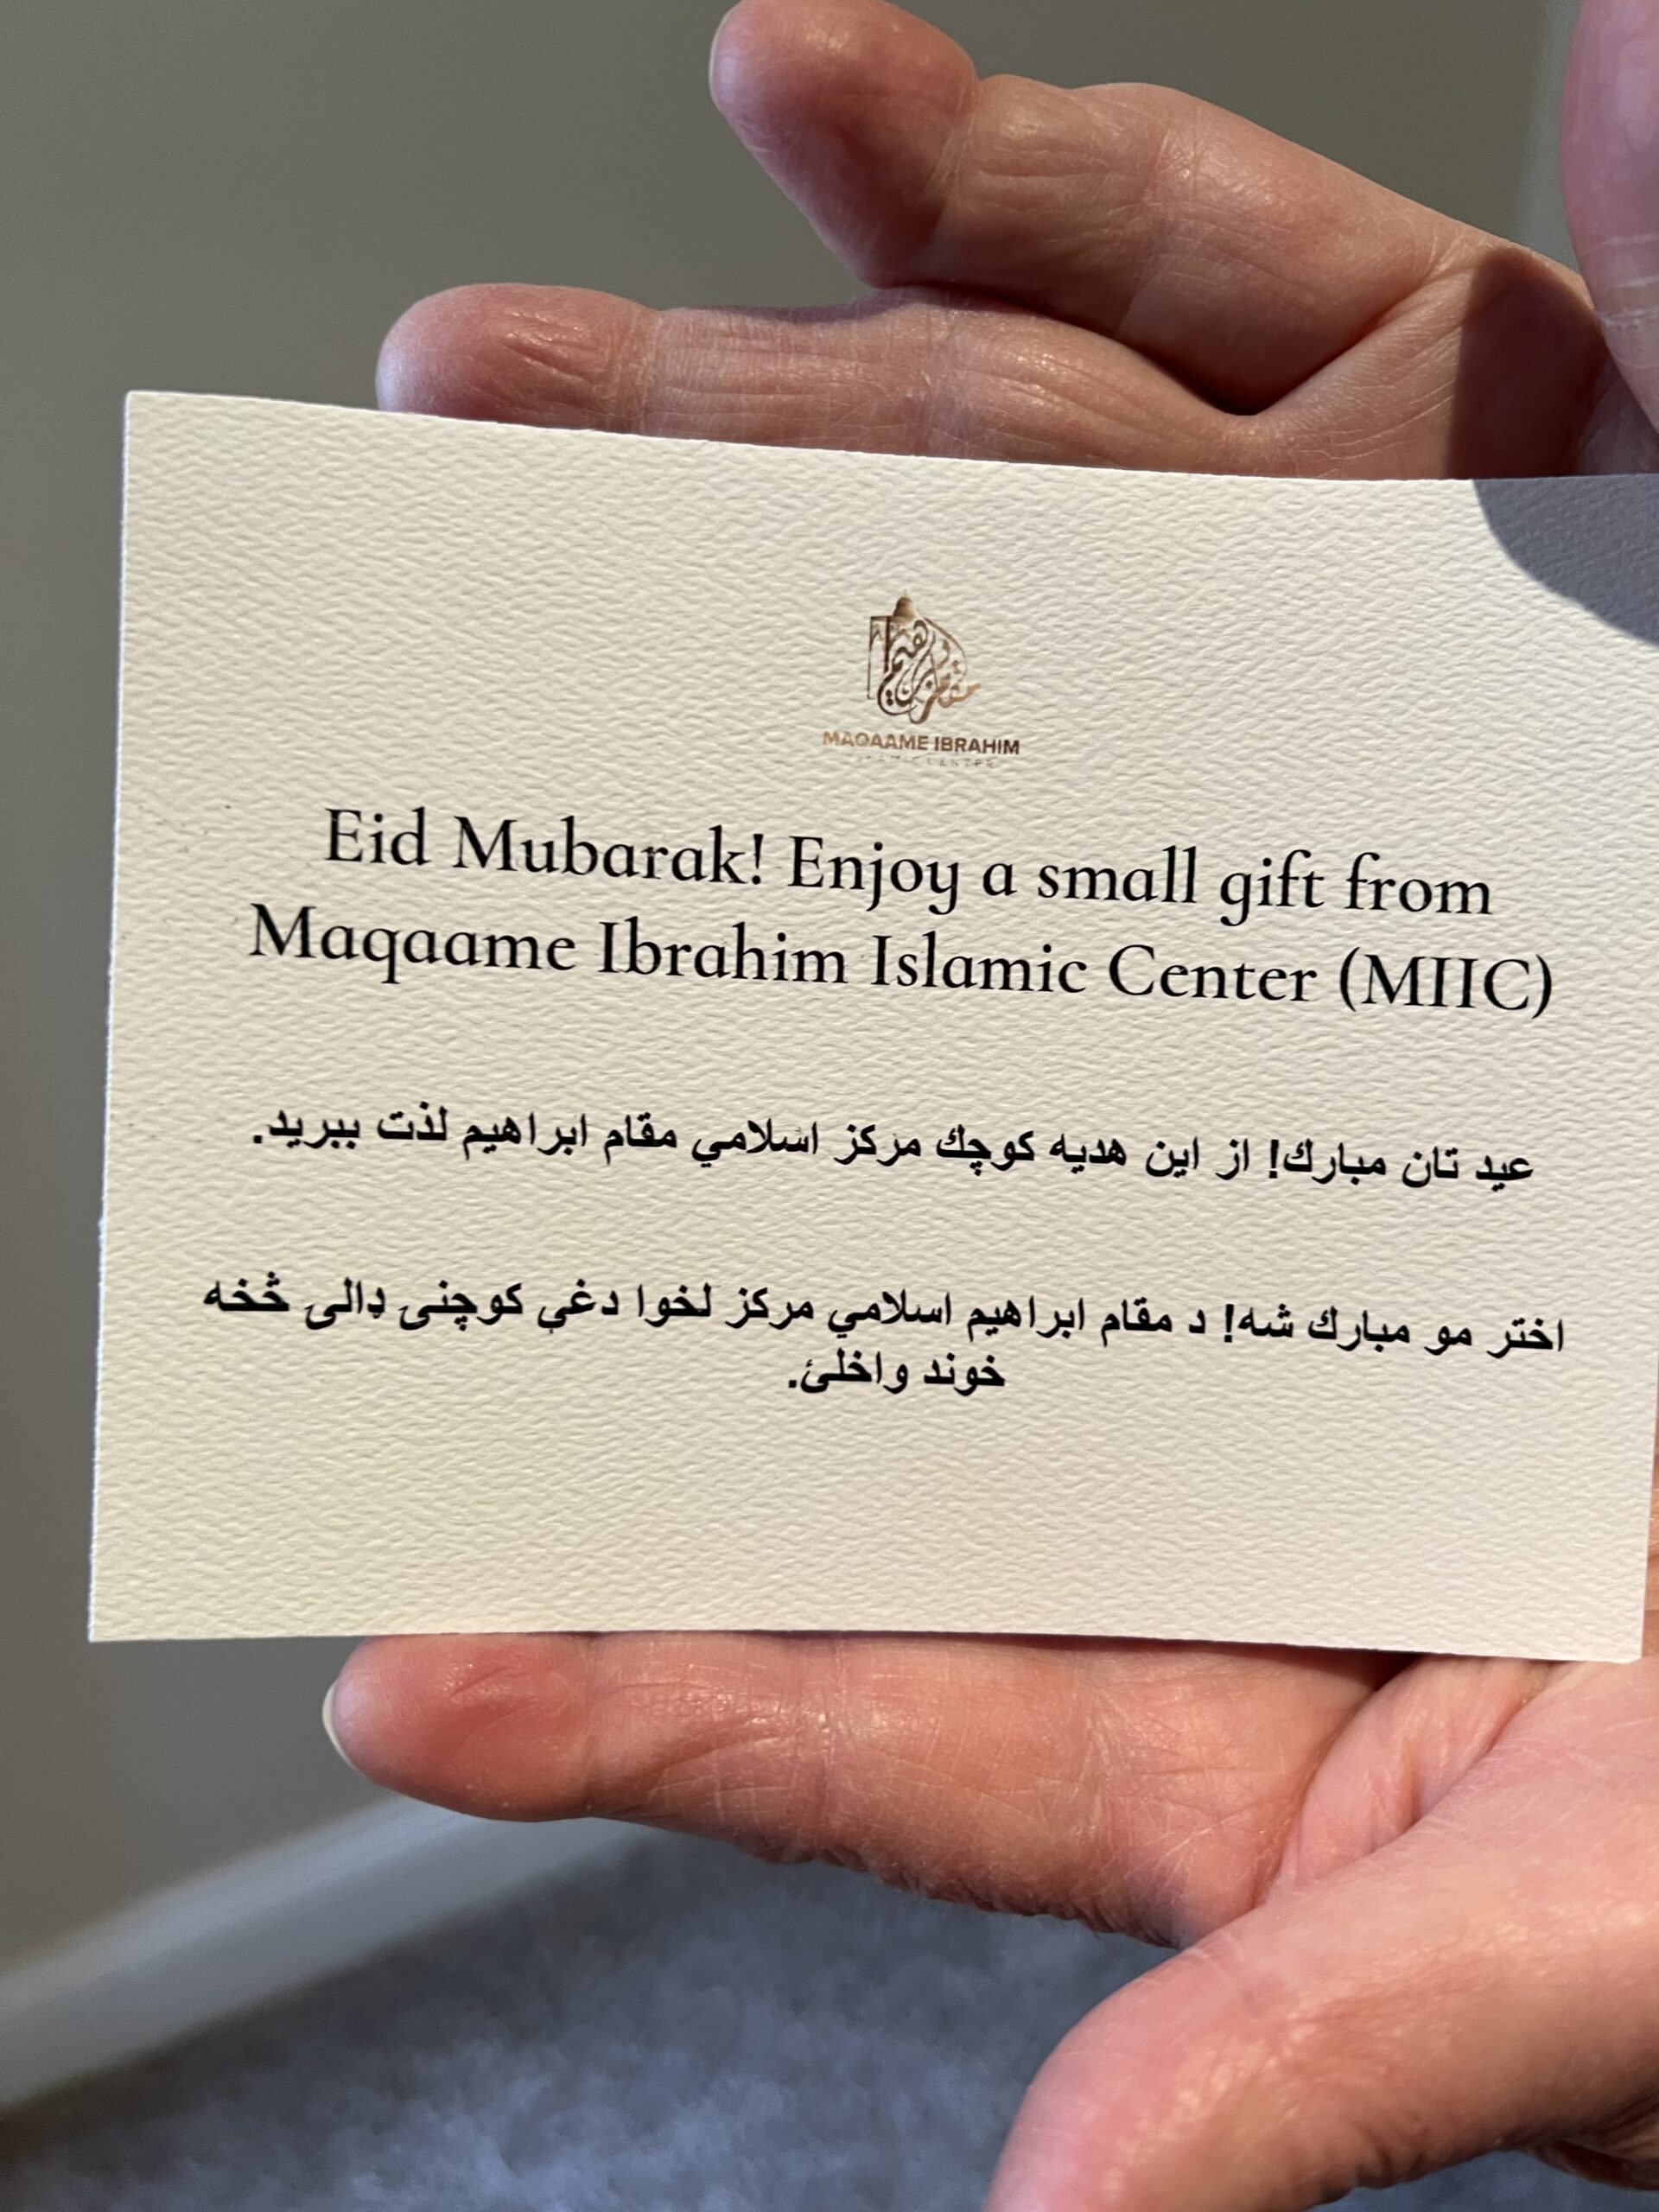 مقام ابراهیم
MAQAAME IBRAHIM
ISLAMIC CENTER
Eid Mubarak! Enjoy a small gift from
Maqaame Ibrahim Islamic Center (MIIC)
عيد تان مبارك! از اين هديه كوچك مركز اسلامي مقام ابراهيم لذت ببريد.
اختر مو مبارك شه! د مقام ابراهيم اسلامي مركز لخوا دغې كوچنۍ ډالۍ څخه
خوند واخلئ.